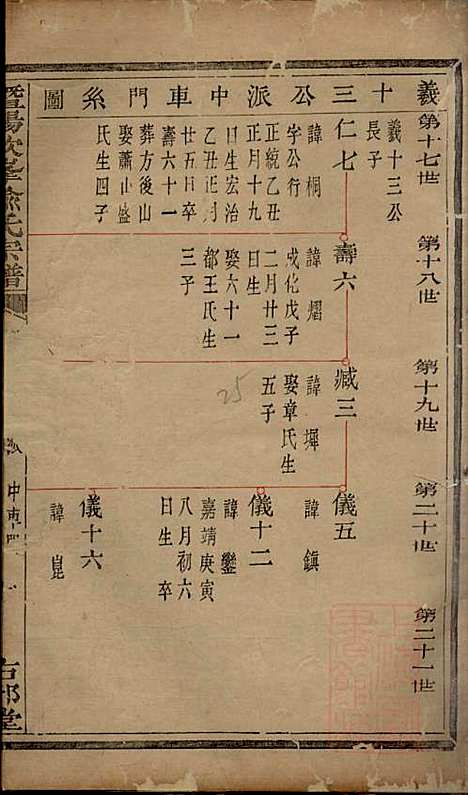 義十三公派中車門系圖
第十七世
第十八世
第十九世
第二十世
第二十一世
義十三公
長子
仁七
諱桐
字公行
正統乙丑
正月十九
日生宏治
乙丑正月
廿五日卒
壽六十一
葬方後山
娶蕭山盛
氏生四子
壽六
諱熠
成化戊子
二月廿三
日生
娶六十一
都王氏生
三子
臧三
諱墀
娶章氏生
五子
25
儀五
諱鎮
儀十二
諱鑾
嘉靖庚寅
八月初六
日生卒
儀十六
諱崑
氏宗譜
中車門